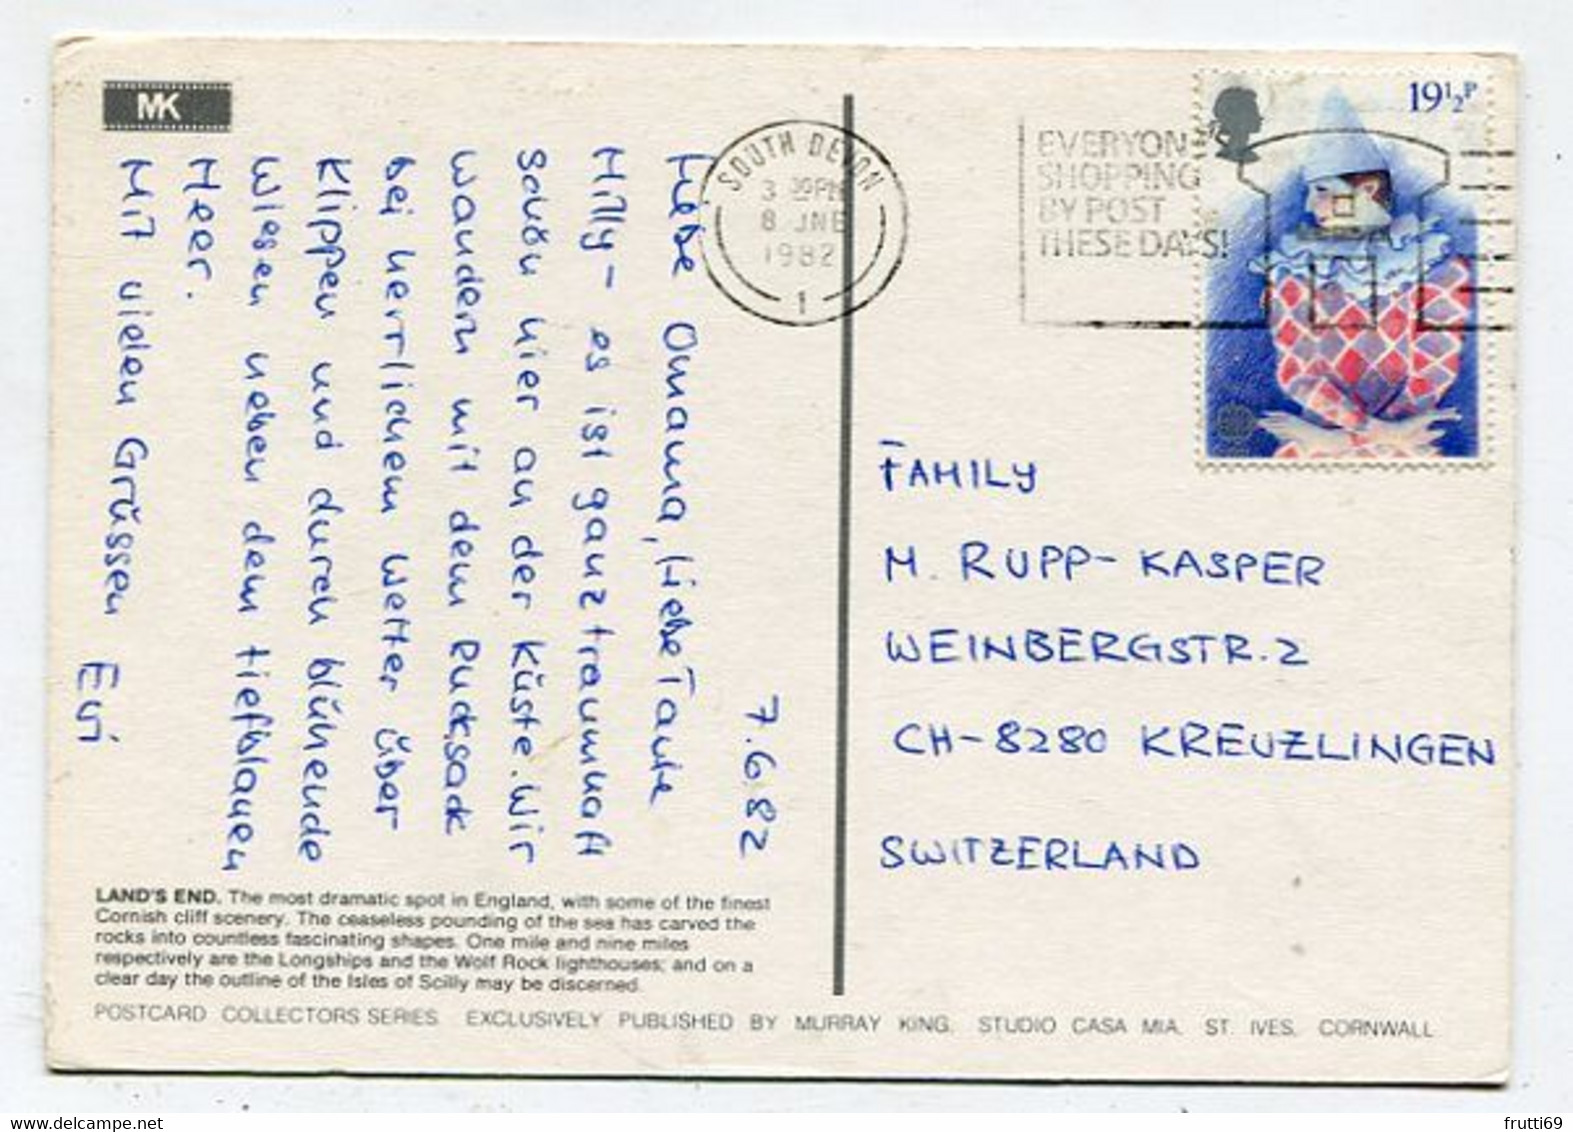 MK
7.6.82
Liebe Omama, liebe Tante
Milly – es ist ganz traumhaft
schön hier an der Küste. Wir
wandern mit dem Rucksack
bei herrlichem Wetter über
Klippen und durch blühende
Wiesen neben dem tiefblauen
Meer.
Mit vielen Grüssen Evi
SOUTH DEVON
3 30PM
8 JNE
1982
1
EVERYON
SHOPPING
BY POST
THESE DAYS!
19½P
FAMILY
M. RUPP-KASPER
WEINBERGSTR. 2
CH-8280 KREUZLINGEN
SWITZERLAND
LAND'S END. The most dramatic spot in England, with some of the finest
Cornish cliff scenery. The ceaseless pounding of the sea has carved the
rocks into countless fascinating shapes. One mile and nine miles
respectively are the Longships and the Wolf Rock lighthouses; and on a
clear day the outline of the Isles of Scilly may be discerned.
POSTCARD COLLECTORS SERIES. EXCLUSIVELY PUBLISHED BY MURRAY KING, STUDIO CASA MIA, ST. IVES, CORNWALL
www.delcampe.net
frutti69